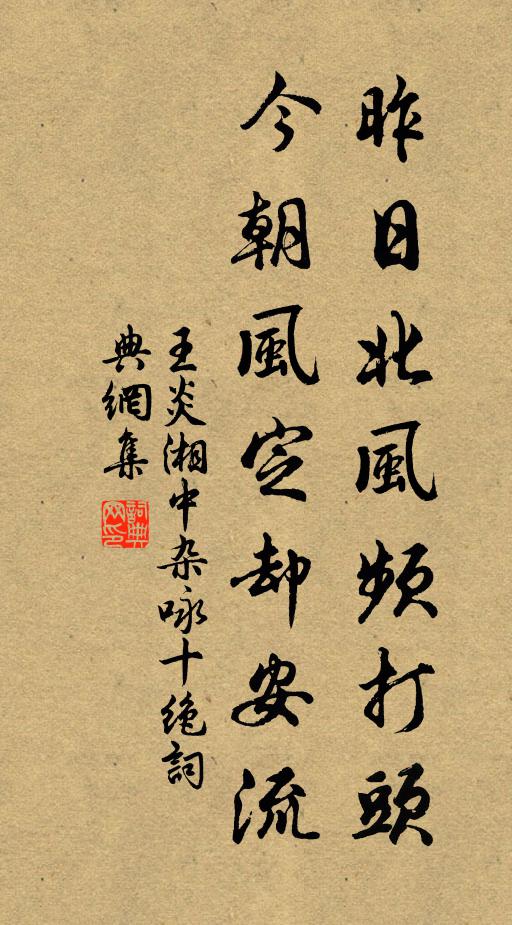 昨日北風頻打頭
今朝風定却安流
王炎湘中杂咏十絶詞
典網集
詞典
网印